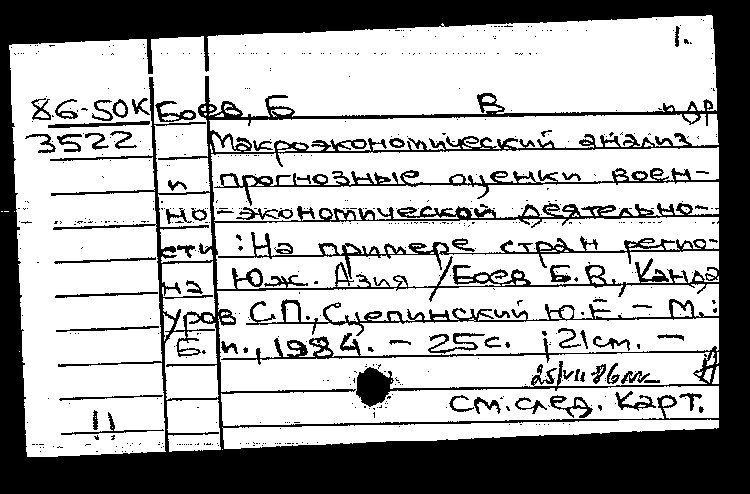 1.
86-50к Боев, Б В и др
3522 Макроэкономический анализ
и прогнозные оценки воен-
но-экономической деятельно-
сти : На примере стран регио-
на Юж. Азия / Боев Б.В., Канда
уров С.П., Сцепинский Ю.Е. – М.:
Б. и., 1984. – 25с. ; 21см. –
см. след. карт.